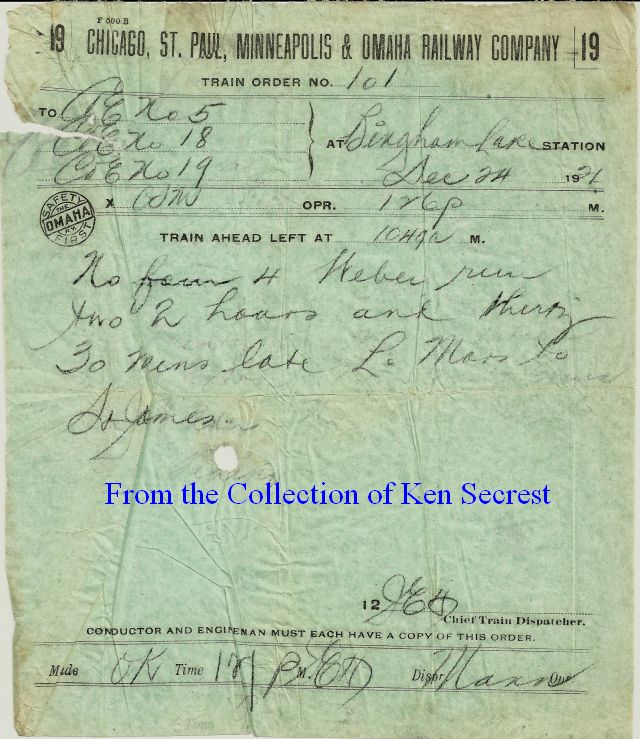 F 500 B
19 CHICAGO, ST. PAUL, MINNEAPOLIS & OMAHA RAILWAY COMPANY 19
TRAIN ORDER NO. 101
TO C&E No 5
C&E No 18
C&E No 19
AT Bingham Lake STATION
Dec 24 1921
SAFETY FIRST THE OMAHA RY.
X OPR. 126p M.
TRAIN AHEAD LEFT AT 1049a M.
No four 4 Weber run
two 2 hours and thirty
30 mins late Le Mars to
St James
From the Collection of Ken Secrest
12 JEH
Chief Train Dispatcher.
CONDUCTOR AND ENGINEMAN MUST EACH HAVE A COPY OF THIS ORDER.
Made OK Time P M. Dispr Mann Opr